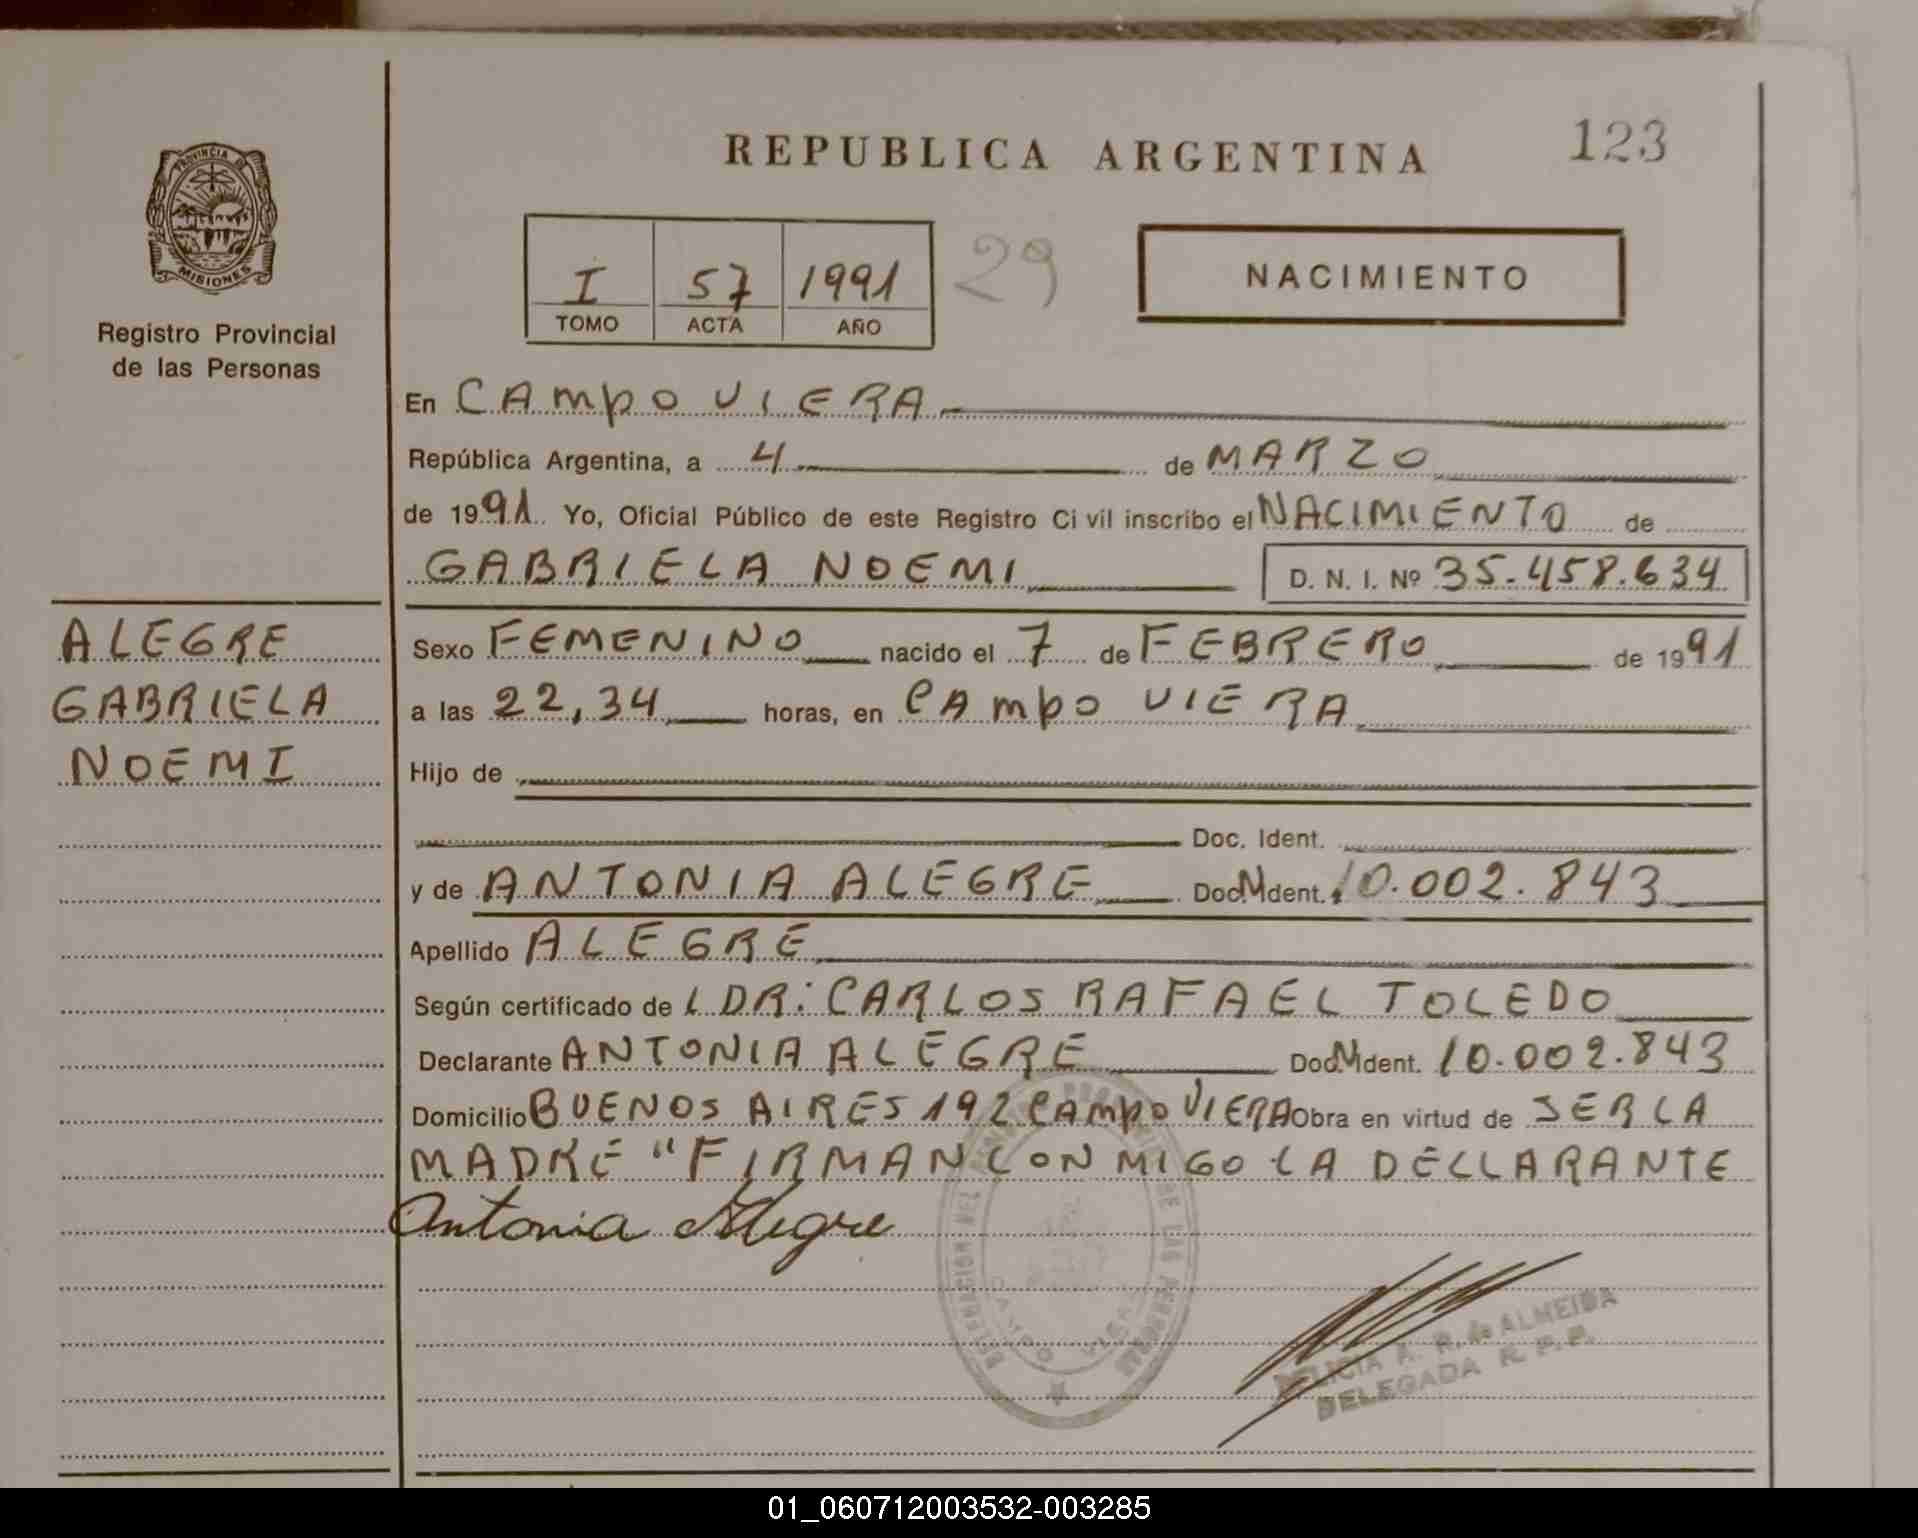 REPUBLICA ARGENTINA
123
PROVINCIA DE
MISIONES
Registro Provincial
de las Personas
I 57 1991
TOMO ACTA AÑO
29
NACIMIENTO
En CAMPO VIERA
República Argentina, a 4 de MARZO
de 1991 Yo, Oficial Público de este Registro Civil inscribo el NACIMIENTO de
GABRIELA NOEMI D. N. I. Nº 35.458.634
ALEGRE
GABRIELA
NOEMI
Sexo FEMENINO nacido el 7 de FEBRERO de 1991
a las 22,34 horas, en CAMPO VIERA
Hijo de
Doc. Ident.
y de ANTONIA ALEGRE Doc. Ident. 10.002.843
Apellido ALEGRE
Según certificado de L DR: CARLOS RAFAEL TOLEDO
Declarante ANTONIA ALEGRE Doc. Ident. 10.002.843
Domicilio BUENOS AIRES 192 CAMPO VIERA Obra en virtud de SER LA
MADRE "FIRMAN CON MIGO LA DECLARANTE
Antonia Alegre
DE LAS PERSONAS
CAMPO VIERA
A. R. de ALMEIDA
DELEGADA R. P. P.
01_060712003532-003285